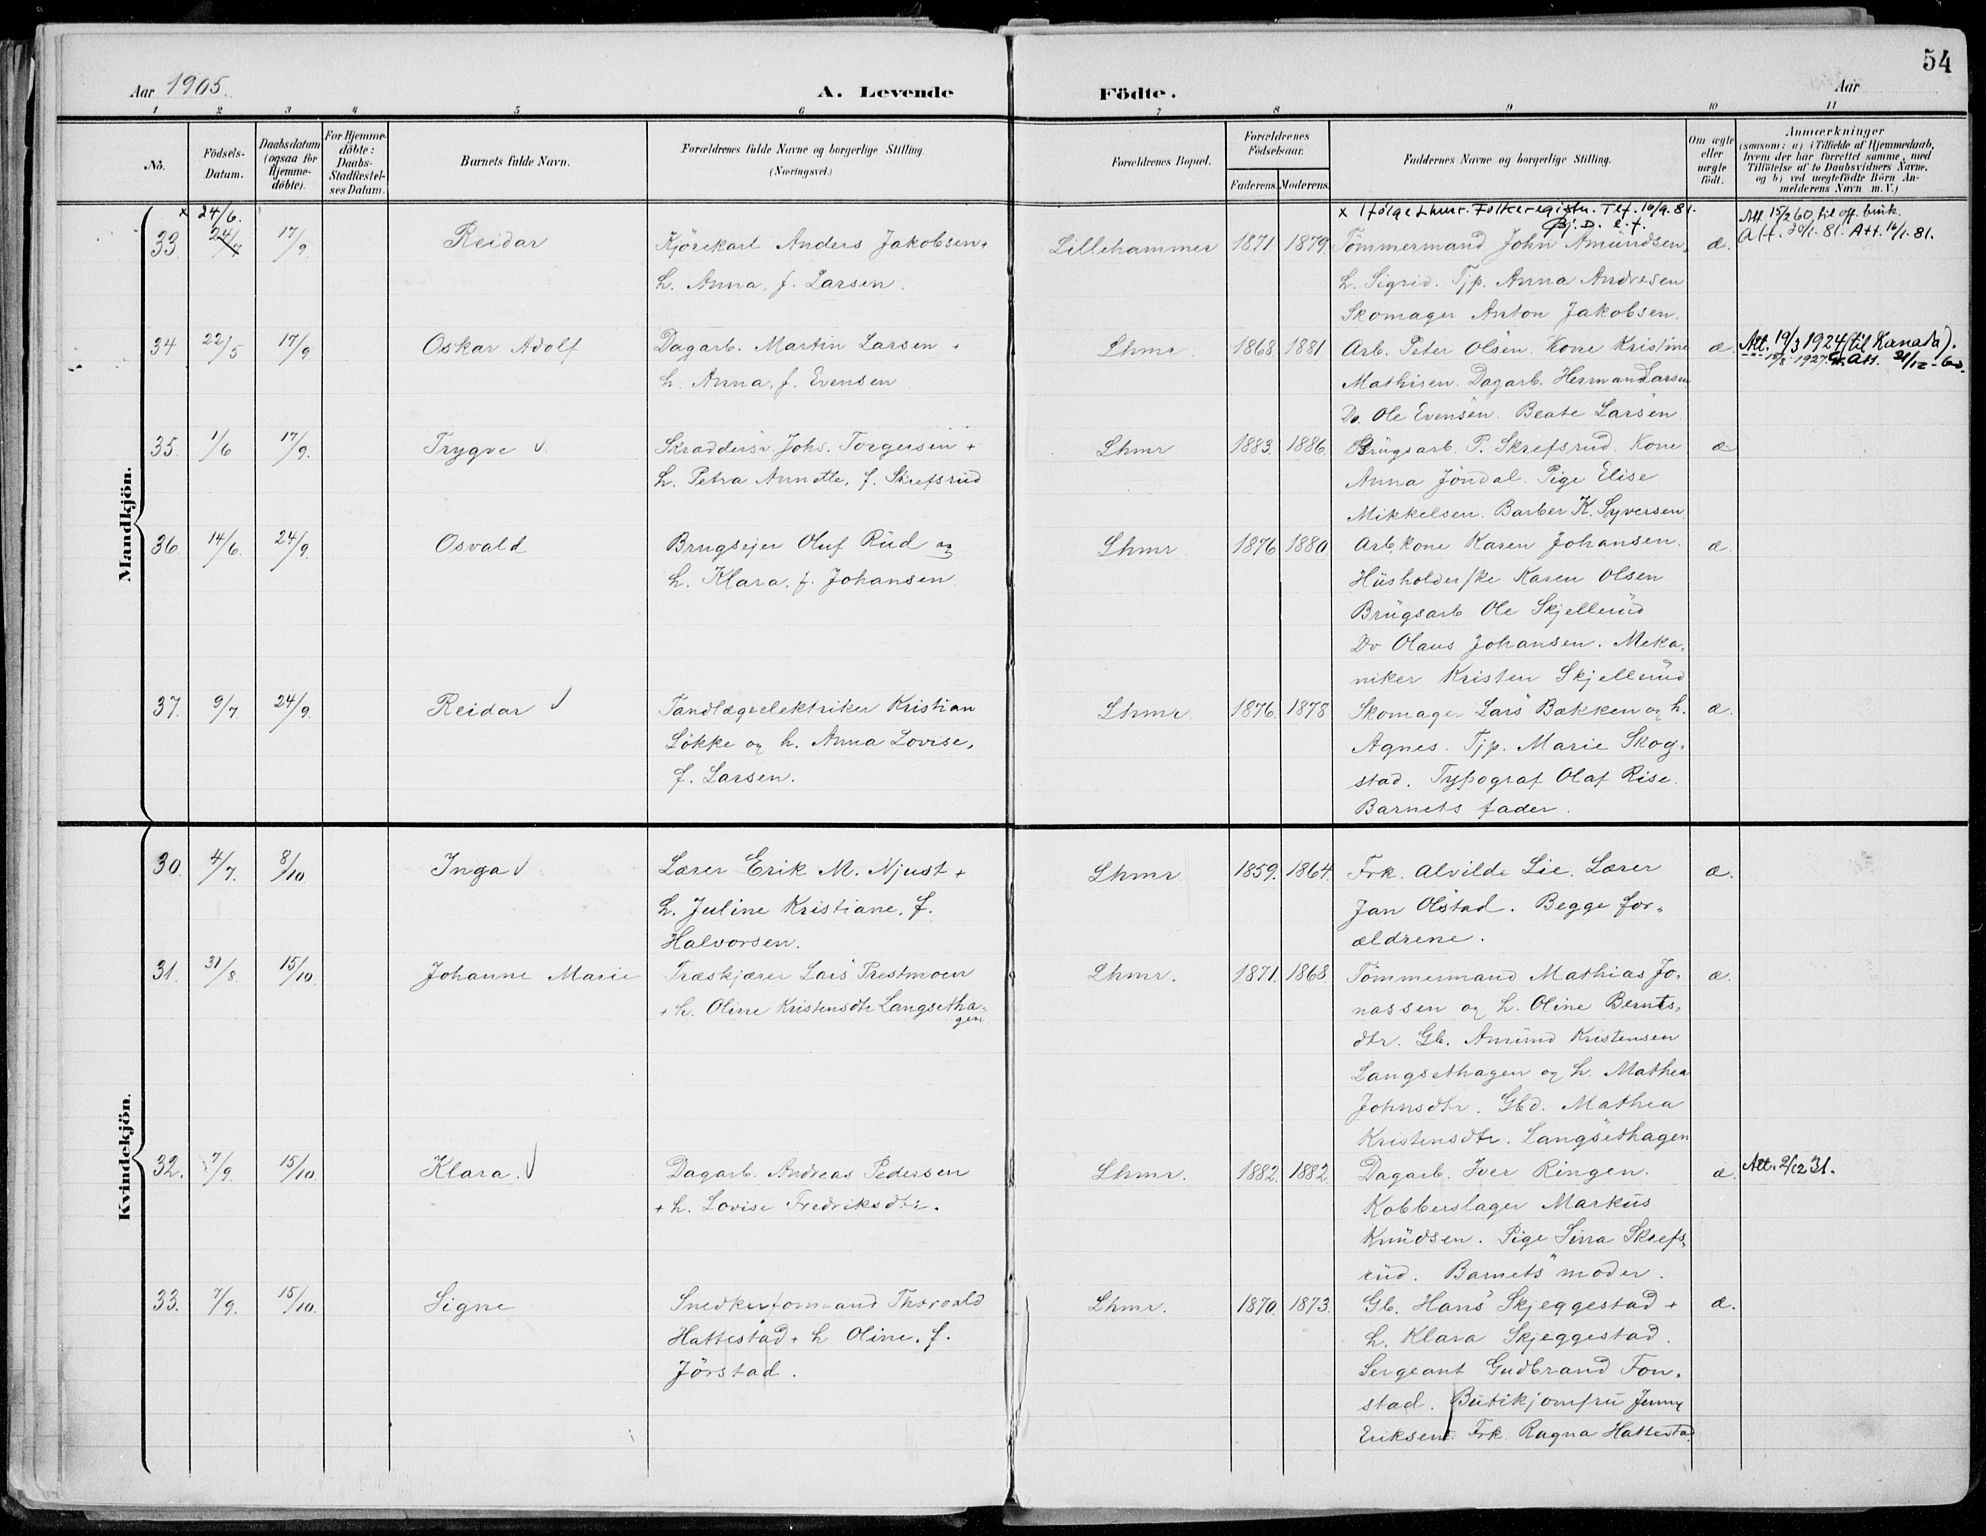 54
Aar 1905.
A. Levende Födte.
Aar
1 2 3 4 5 6 7 8 9 10 11
No.
Födsels-Datum.
Daabsdatum (ogsaa for Hjemme-döbte).
For Hjemme-döbte: Daabs-Stadfæstel-ses Datum.
Barnets fulde Navn.
Forældrenes fulde Navne og borgerlige Stilling.
(Næringsvei.)
Forældrenes Bopæl.
Forældrenes Födselsaar.
Faderens. Moderens.
Faddernes Navne og borgerlige Stilling.
Om ægte eller uægte födt.
Anmærkninger
(saasom: a) i Tilfælde af Hjemmedaab,
hvem der har forrettet samme, med
Tilföielse af to Daabsvidners Navne,
og b) ved uægtefödte Börn An-
melderens Navn m. V.)
Mandkjön.
x 24/6.
x Ifølge Lhmr. Folkeregistr. Tlf. 10/9.81.
Bj. D. e.f.
Att. 15/2 60 til off. bruk.
Att. 20/1-81. Att. 16/1.81.
33. 24/7 17/9 Reidar Kjörekarl Anders Jakobsen + Lillehammer 1871 1879 Tömmermand John Amundsen, æ.
h. Anna, f. Larsen. h. Sigrid. Tjp. Anna Andresen
Skomager Anton Jakobsen.
34 22/5 17/9 Oskar Adolf Dagarb. Martin Larsen + Lhmr. 1868 1881 Arb. Peter Olsen. Kone Kristine æ. Att. 19/3 1924 (til Kanada).
h. Anna, f. Evensen Mathisen. Dagarb. Herman Larsen
Do. Ole Evensen. Beate Larsen
35. 1/6 17/9. Trygve v. Skræddersv. Johs. Torgersen + Lhmr 1883. 1886. Brugsarb. P. Skrefsrud. Kone æ
h. Petra Annette, f. Skrefsrud Anna Jöndal. Pige Elise
Mikkelsen. Barber K. Syversen
36. 14/6. 24/9. Osvald Brugsejer Oluf Rud og Lhmr 1876 1880 Arb. kone Karen Johansen. æ.
h. Klara, f. Johansen. Husholderske Karen Olsen
Brugsarb Ole Skjellerud
Do Olaus Johansen. Meka-
niker Kristen Skjellerud
37. 9/7 24/9. Reidar v Tandlægeelektriker Kristian Lhmr. 1876. 1878 Skomager Lars Bakken og h. æ.
Lökke og h. Anna Lovise, Agnes. Tjp. Marie Skog-
f. Larsen. stad. Typograf Olaf Rise.
Barnets fader.
Kvindekjön.
30. 4/7. 8/10. Inga v Lærer Erik M. Njust + Lhmr. 1859. 1864. Frk. Alvilde Lie. Lærer æ.
h. Juline Kristiane, f. Jan Olstad. Begge for-
Halvorsen. ældrene.
31. 31/8 15/10. Johanne Marie Træskjærer Lars Prestmoen Lhmr. 1871. 1868 Tömmermand Mathias Jo- æ.
+ h. Oline Kristensdtr Langsetha- nassen og h. Oline Bernts-
gen dtr. Gb. Amund Kristensen
Langsethagen og h. Mathea
Johnsdtr. Gbd. Mathea
Kristensdtr. Langsethagen
32. 7/9. 15/10. Klara. v Dagarb. Andreas Pedersen Lhmr. 1882. 1882. Dagarb. Iver Ringen. æ. Att. 2/12 31.
+ h. Lovise Fredriksdtr. Kobberslager Markus
Knudsen. Pige Sina Skrefs-
rud. Barnets moder.
33. 7/9. 15/10. Signe Snedkerformand Thorvald Lhmr. 1870. 1873. Gb. Hans Skjeggestad + æ.
Hattestad + h Oline, f. h. Klara Skjeggestad.
Jörstad. Sergeant Gudbrand Fon-
stad. Butikjomfru Jenny
Eriksen. Frk. Ragna Hattestad